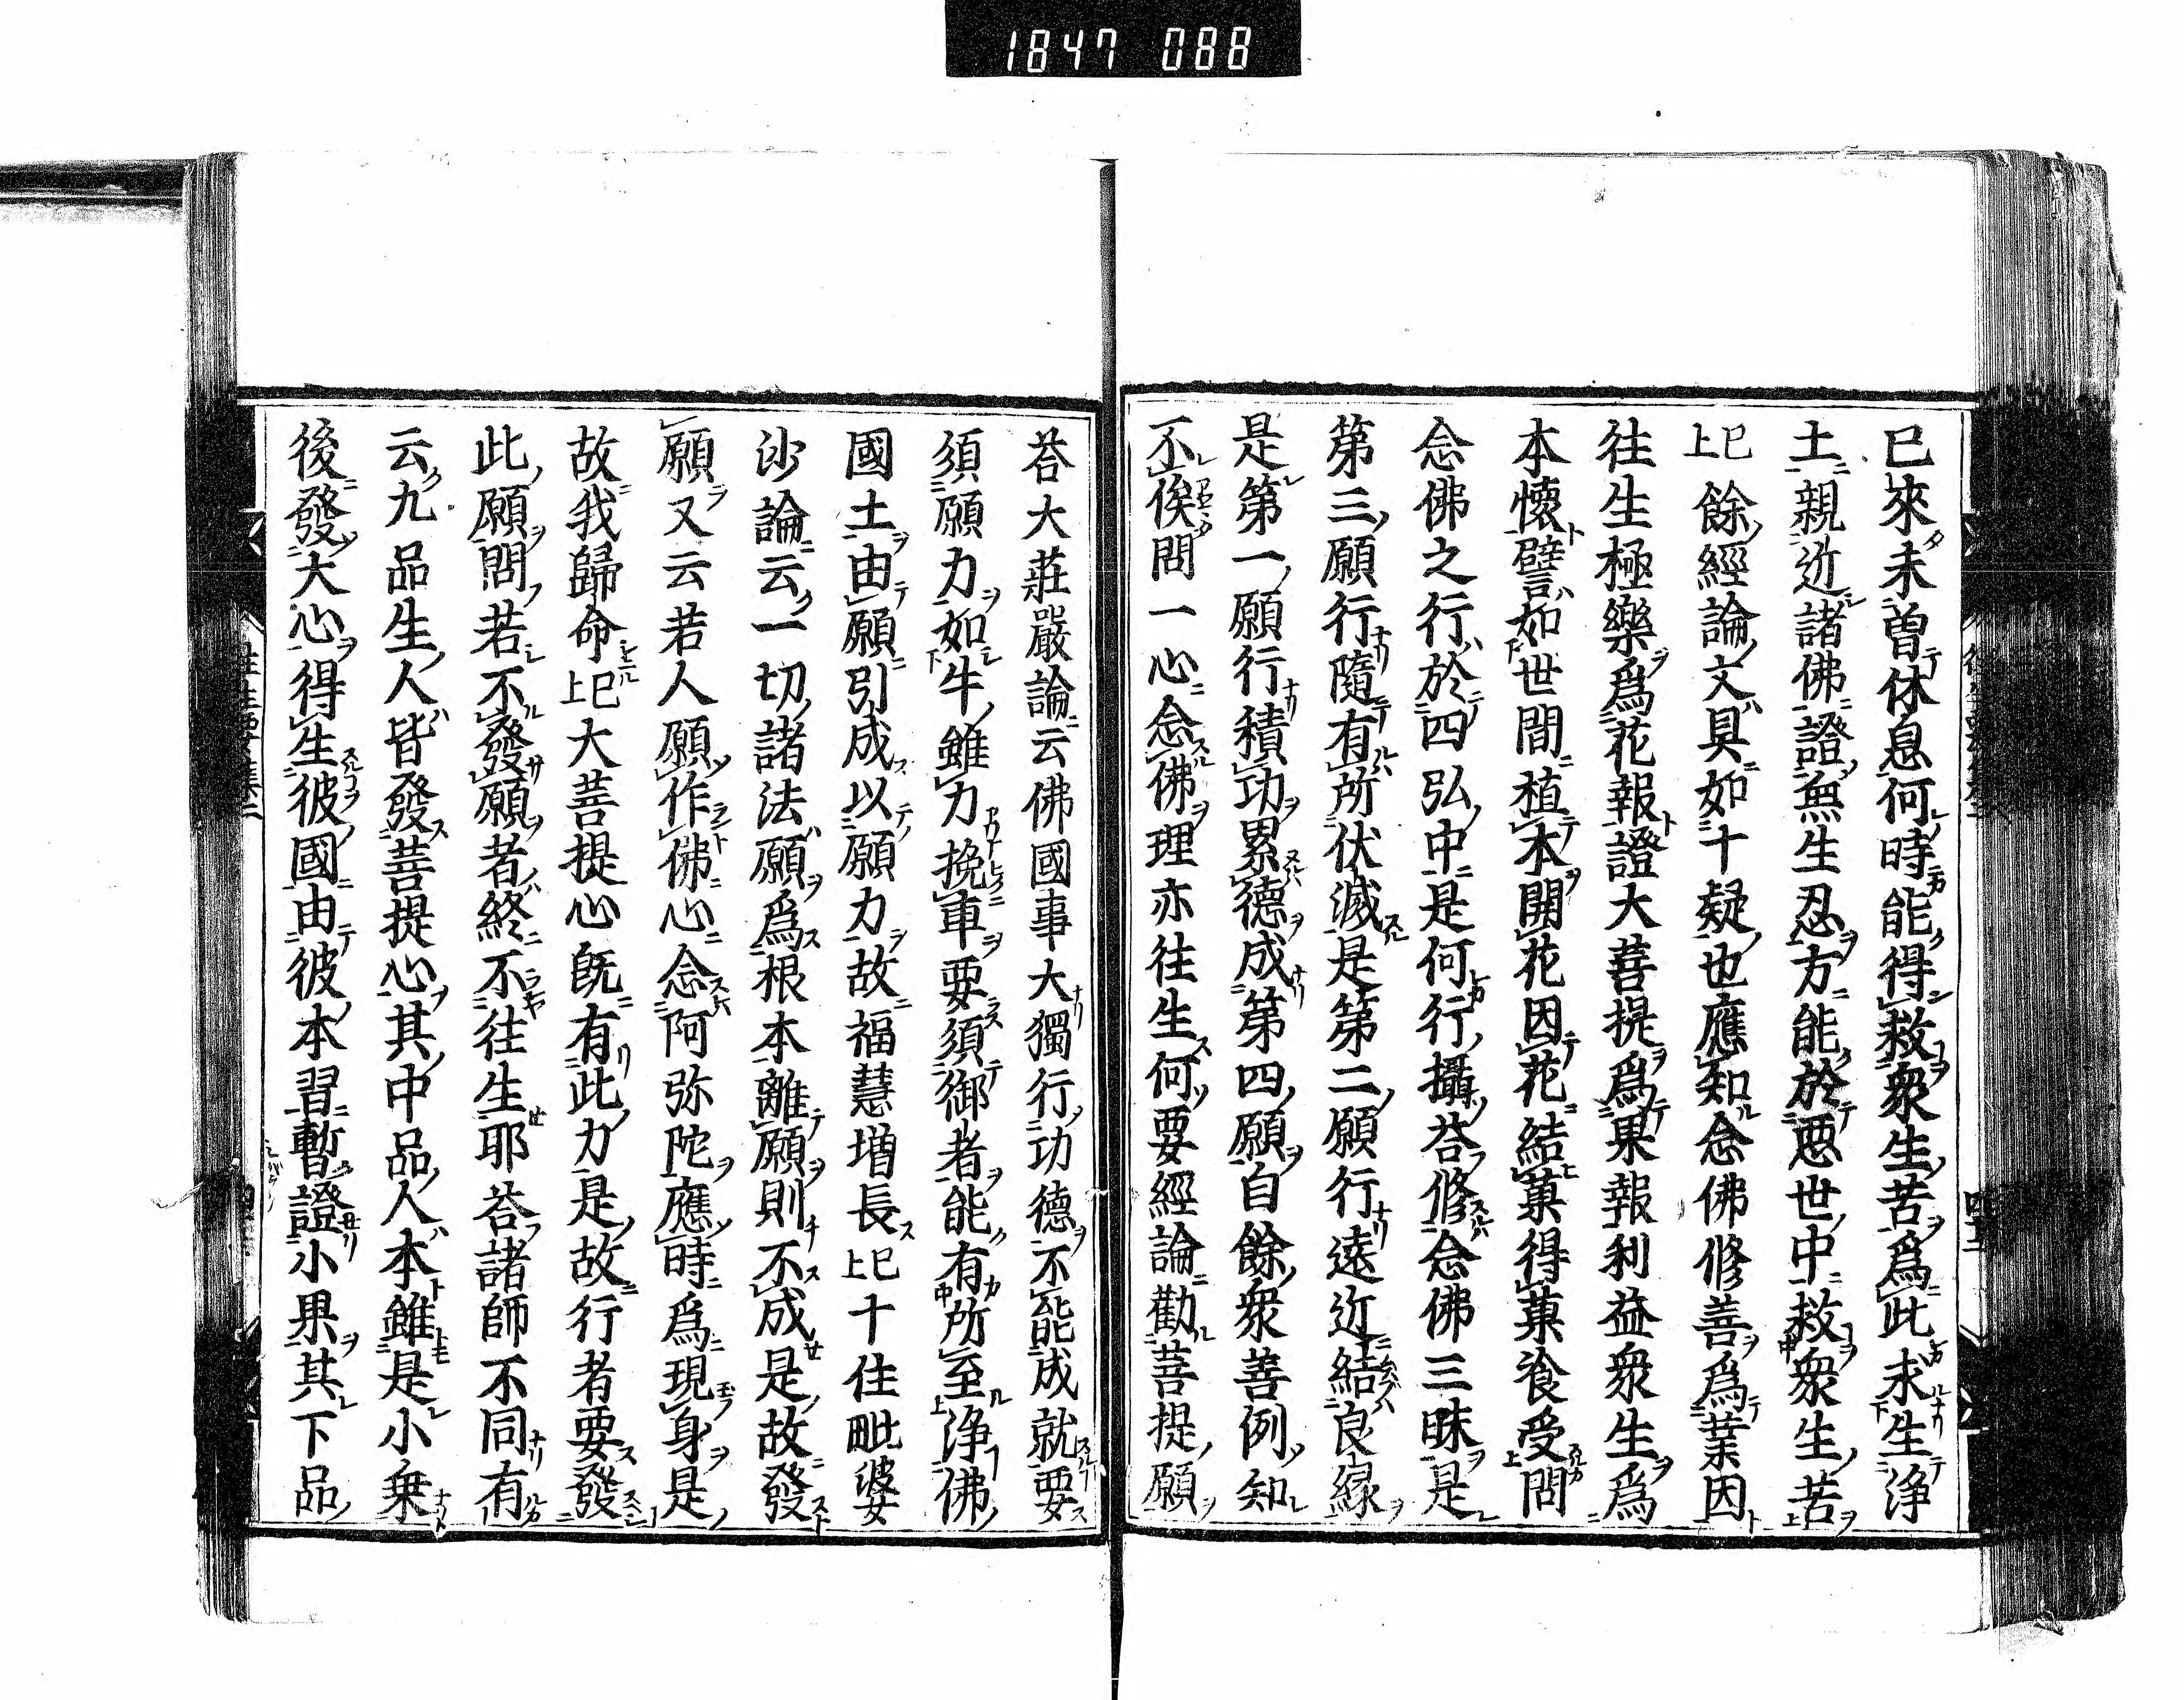 1847 088
已來未曽休息何時能得救衆生苦爲此求生浄
土親近諸佛證無生忍方能於惡世中救衆生苦
已上餘經論文具如十疑也應知念佛修善爲業因
往生極樂爲花報證大菩提爲果報利益衆生爲
本懷譬如世間植木開花因花結菓得菓飡受問
念佛之行於四弘中是何行攝荅修念佛三昧是
第三願行隨有所伏滅是第二願行遠近結良縁
是第一願行積功累德成第四願自餘衆善例知
不俟問一心念佛理亦往生何要經論勸菩提願
荅大莊嚴論云佛國事大獨行功德不能成就要
須願力如牛雖力挽車要須御者能有所至浄佛
國土由願引成以願力故福慧増長已上十住毗婆
沙論云一切諸法願爲根本離願則不成是故發
願又云若人願作佛心念阿弥陀應時爲現身是
故我歸命已上大菩提心旣有此力是故行者要發
此願問若不發願者終不往生耶荅諸師不同有
云九品生人皆發菩提心其中品人本雖是小乗
後發大心得生彼國由彼本習暫證小果其下品